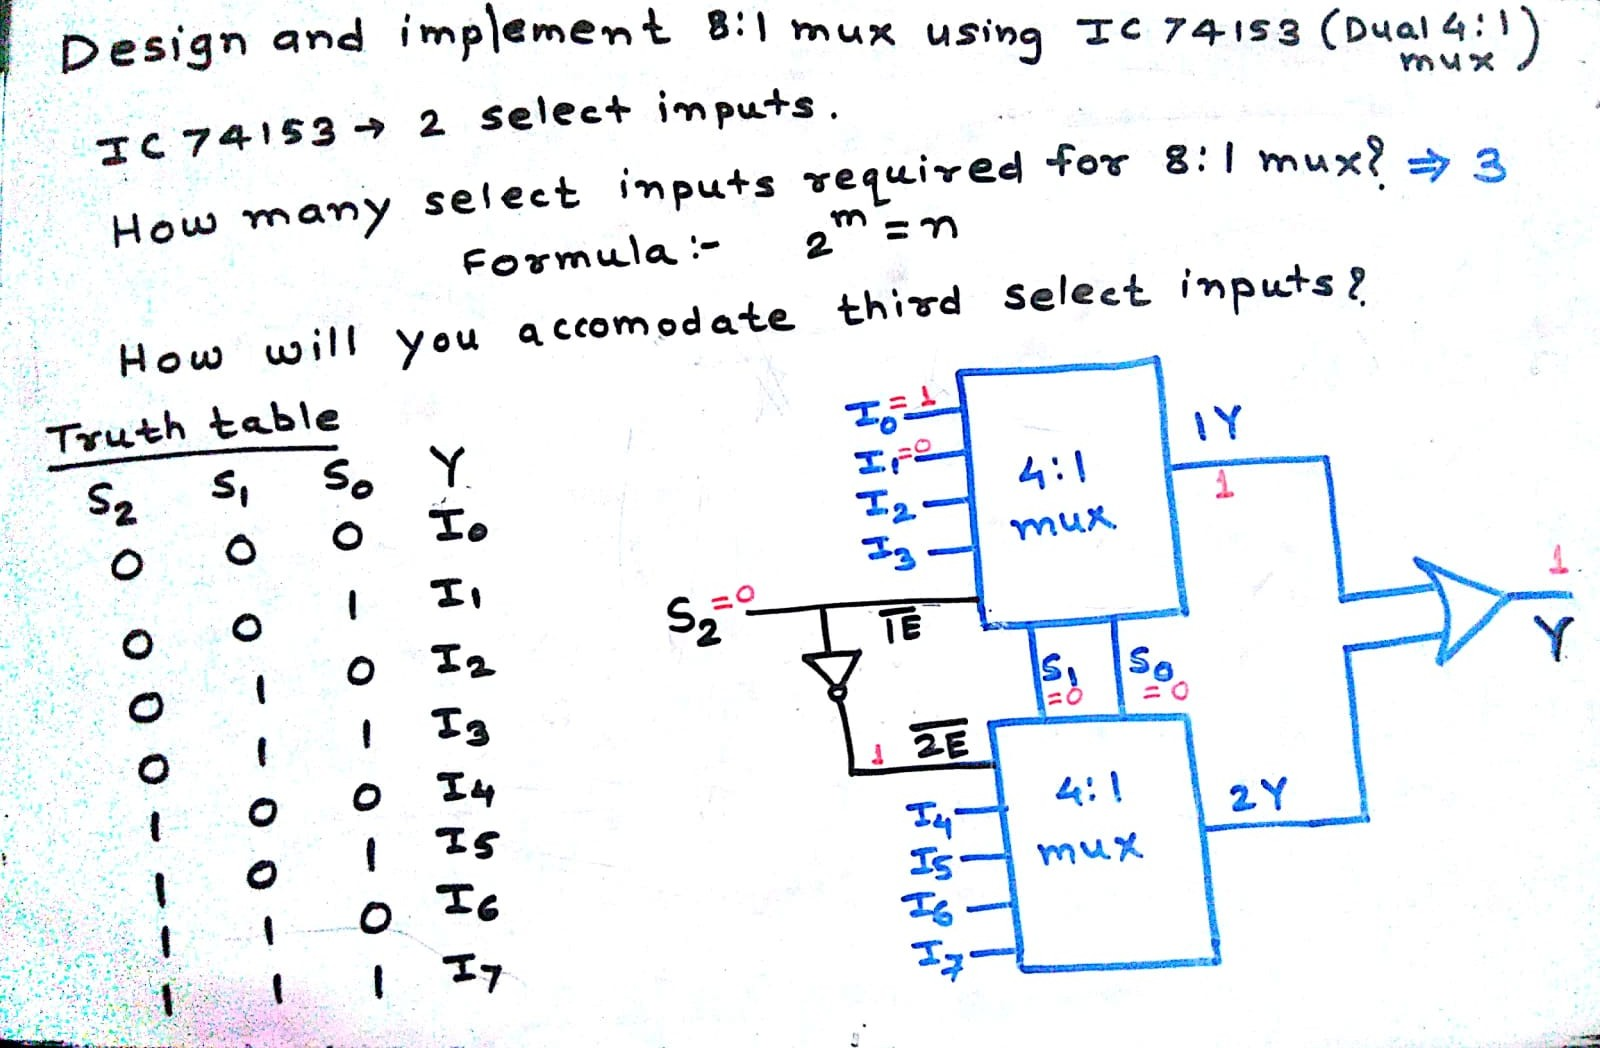 Design and implement 8:1 mux using IC 74153 (Dual 4:1 mux)
IC 74153 → 2 select inputs.
How many select inputs required for 8:1 mux? ⇒ 3
Formula :- 2^m = n
How will you accomodate third select inputs?
Truth table
S2 S1 S0 Y
0 0 0 I0
0 0 1 I1
0 1 0 I2
0 1 1 I3
1 0 0 I4
1 0 1 I5
1 1 0 I6
1 1 1 I7
I0 = 1
I1 = 0
I2
I3
4:1
mux
1Y
1
S2 = 0
1E̅
S1 = 0
S0 = 0
1
2E̅
I4
I5
I6
I7
4:1
mux
2Y
1
Y